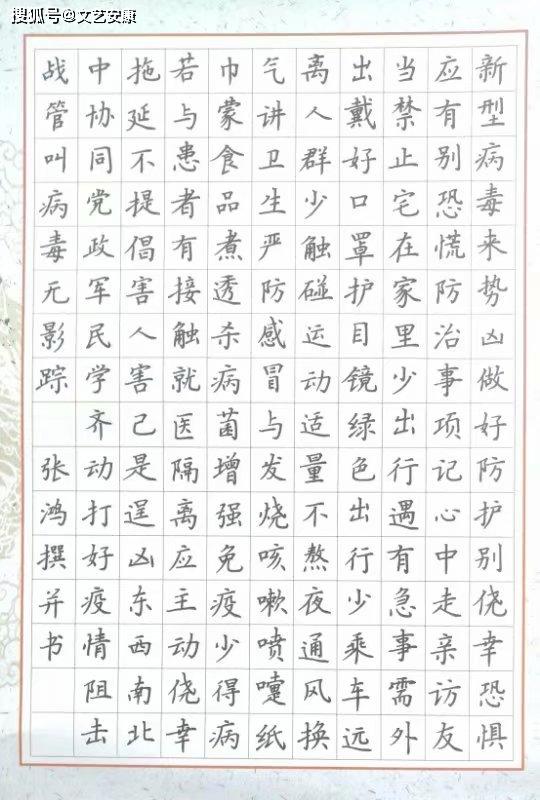 搜狐号@文艺安康
新型病毒来势凶做好防护别侥幸恐惧
应有别恐慌防治事项记心中走亲访友
当禁止宅在家里少出行遇有急事需外
出戴好口罩护目镜绿色出行少乘车远
离人群少触碰运动适量不熬夜通风换
气讲卫生严防感冒与发烧咳嗽喷嚏纸
巾蒙食品煮透杀病菌增强免疫少得病
若与患者有接触就医隔离应主动侥幸
拖延不提倡害人害己是逞凶东西南北
中协同党政军民学齐动打好疫情阻击
战管叫病毒无影踪 张鸿撰并书